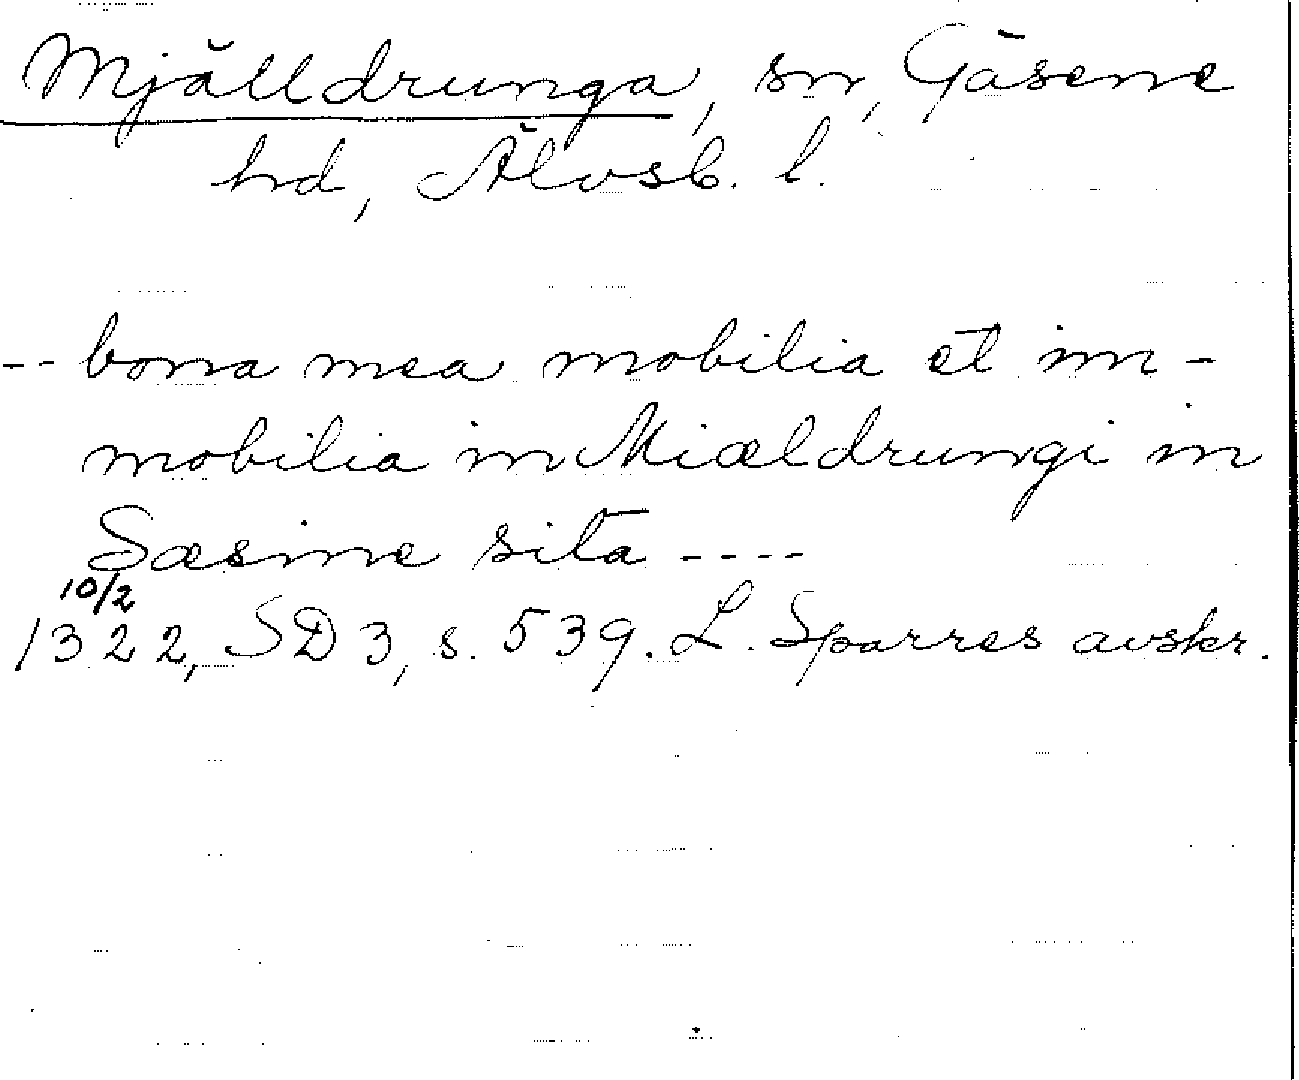 Mjälldrunga, sn, Gäsene
hd, Älvsb. l.
-- bona mea mobilia et im-
mobilia in Miældrungi in
Sæsine sita ----
10/2
1322, SD 3, s. 539. L. Sparres avskr.